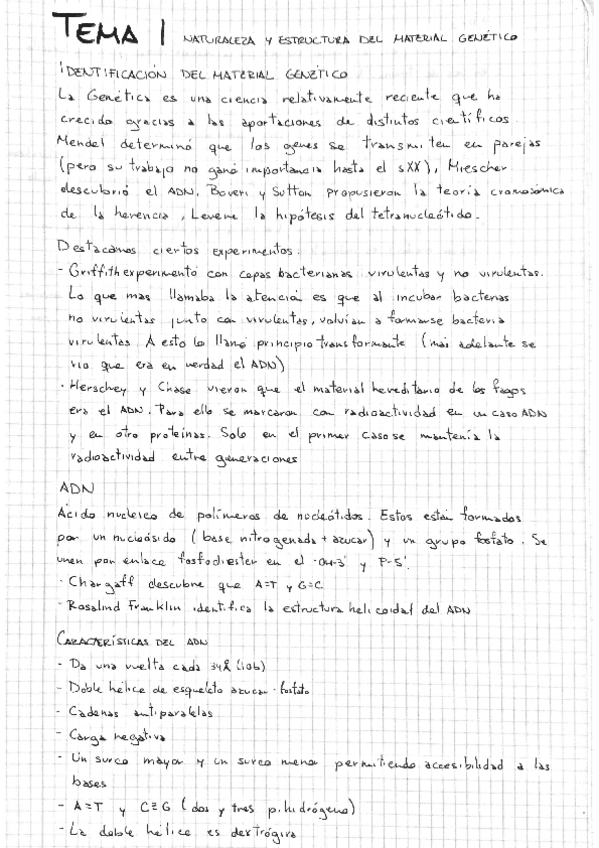 TEMA 1 NATURALEZA Y ESTRUCTURA DEL MATERIAL GENÉTICO
IDENTIFICACIÓN DEL MATERIAL GENÉTICO
La Genética es una ciencia relativamente reciente que ha
crecido gracias a las aportaciones de distintos científicos.
Mendel determinó que los genes se transmiten en parejas
(pero su trabajo no ganó importancia hasta el sXX), Miescher
descubrió el ADN, Boveri y Sutton propusieron la teoría cromosómica
de la herencia, Levene la hipótesis del tetranucleótido.
Destacamos ciertos experimentos:
- Griffith experimentó con cepas bacterianas virulentas y no virulentas.
Lo que más llamaba la atención es que al incubar bacterias
no virulentas junto con virulentas, volvían a formarse bacteria
virulentas. A esto lo llamó principio transformante (más adelante se
vio que era en verdad el ADN)
- Herschey y Chase vieron que el material hereditario de los fagos
era el ADN. Para ello se marcaron con radioactividad en un caso ADN
y en otro proteínas. Solo en el primer caso se mantenía la
radioactividad entre generaciones
ADN
Ácido nucleico de polímeros de nucleótidos. Estos están formados
por un nucleósido (base nitrogenada + azucar) y un grupo fosfato. Se
unen por enlace fosfodiester en el -OH-3' y P-5'.
- Chargaff descubre que A=T y G=C
- Rosalind Franklin identifica la estructura helicoidal del ADN
CARACTERÍSTICAS DEL ADN
- Da una vuelta cada 34Å (10b)
- Doble hélice de esqueleto azucar-fosfato
- Cadenas antiparalelas
- Carga negativa
- Un surco mayor y un surco menor permitiendo accesibilidad a las
bases
- A=T y C≡G (dos y tres p. hidrógeno)
- La doble hélice es dextrógira